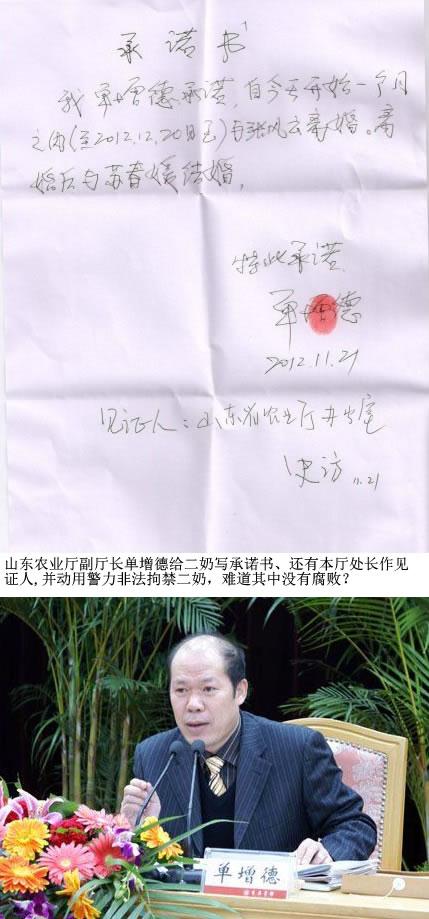 承诺书
我单增德承诺,自今天开始一个月
之内(至2012.12.20日至)与张凤云离婚。离
婚后与苏春媛结婚,
特此承诺.
单增德
2012.11.21
见证人:山东省农业厅办公室
史访 11.21
山东农业厅副厅长单增德给二奶写承诺书、还有本厅处长作见
证人,并动用警力非法拘禁二奶，难道其中没有腐败?
单增德